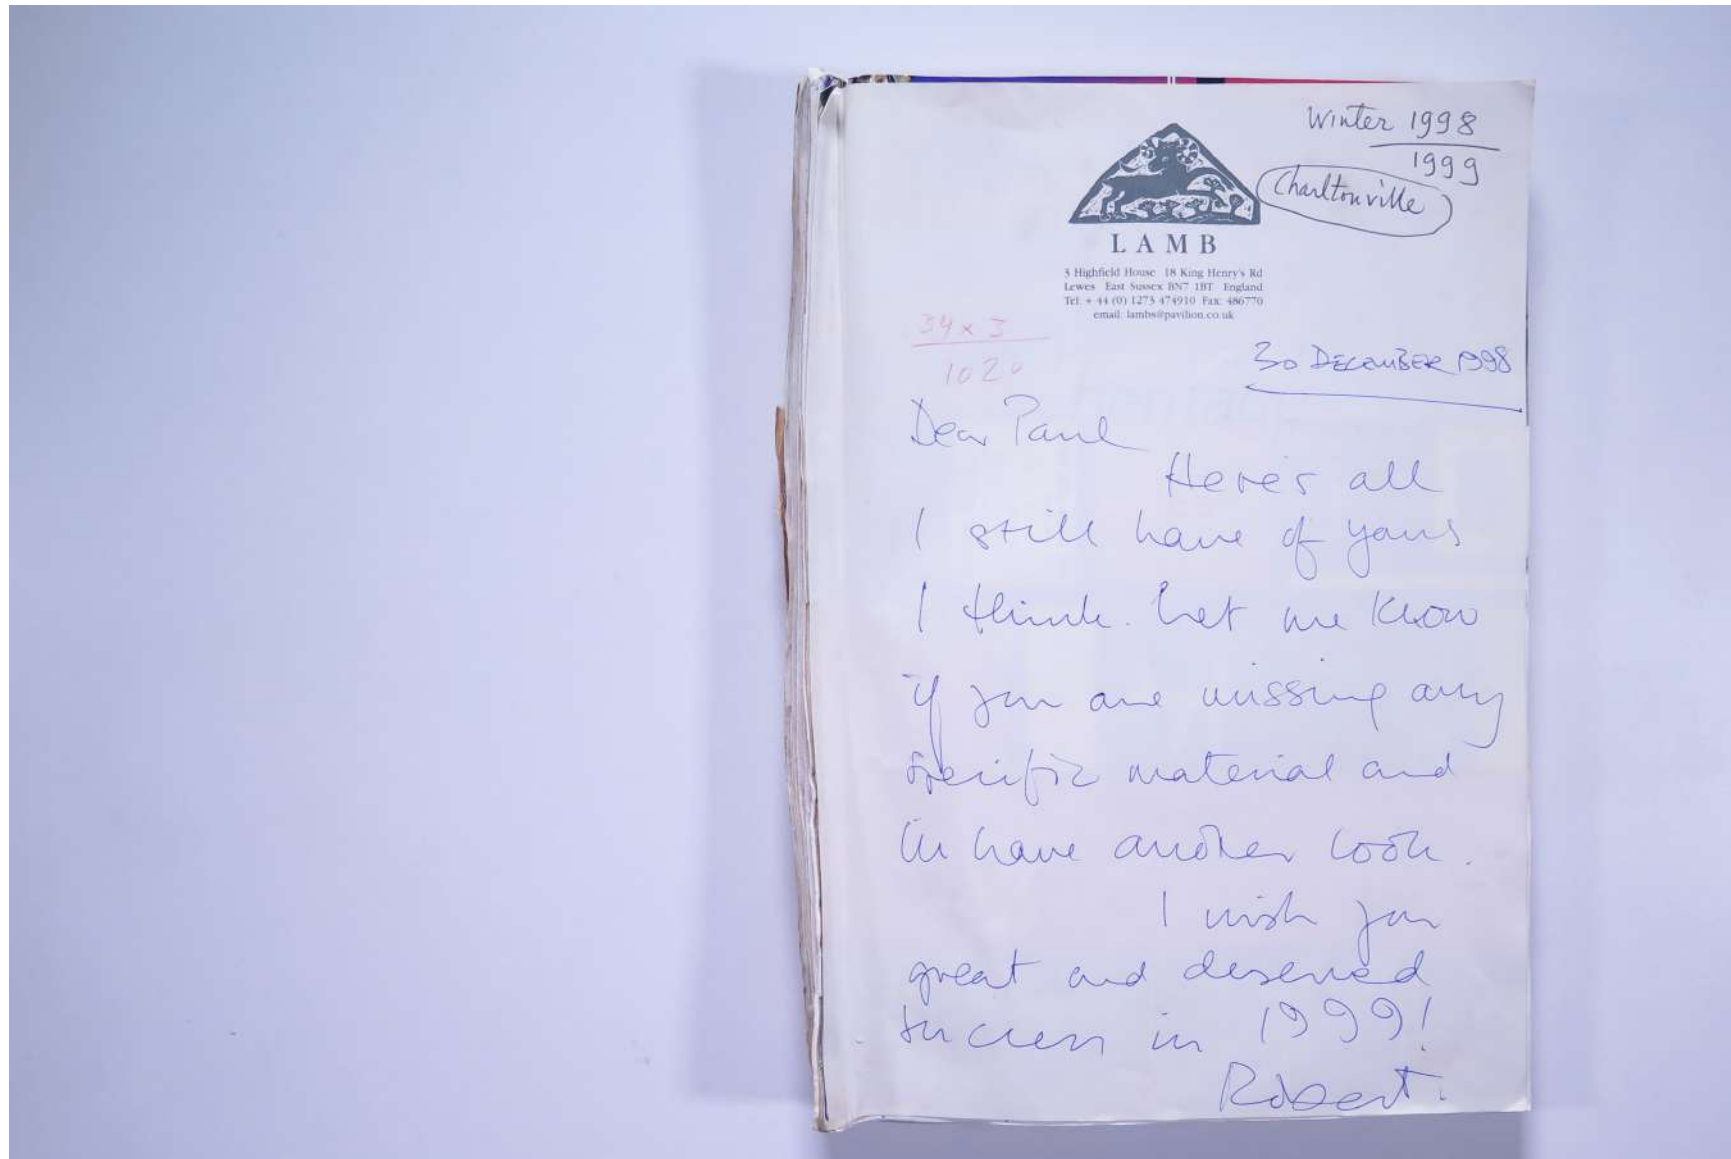 Winter 1998
1999
Charltonville
LAMB
3 Highfield House 18 King Henry's Rd
Lewes East Sussex BN7 1BT England
Tel: + 44 (0) 1273 474910 Fax: 486770
email: lambs@pavilion.co.uk
34 x 3
1020
30 DECEMBER 1998
Dear Paul
Here's all
I still have of yours
I think. Let me know
if you are missing any
specific material and
I'll have another look.
I wish you
great and deserved
success in 1999!
Robert.